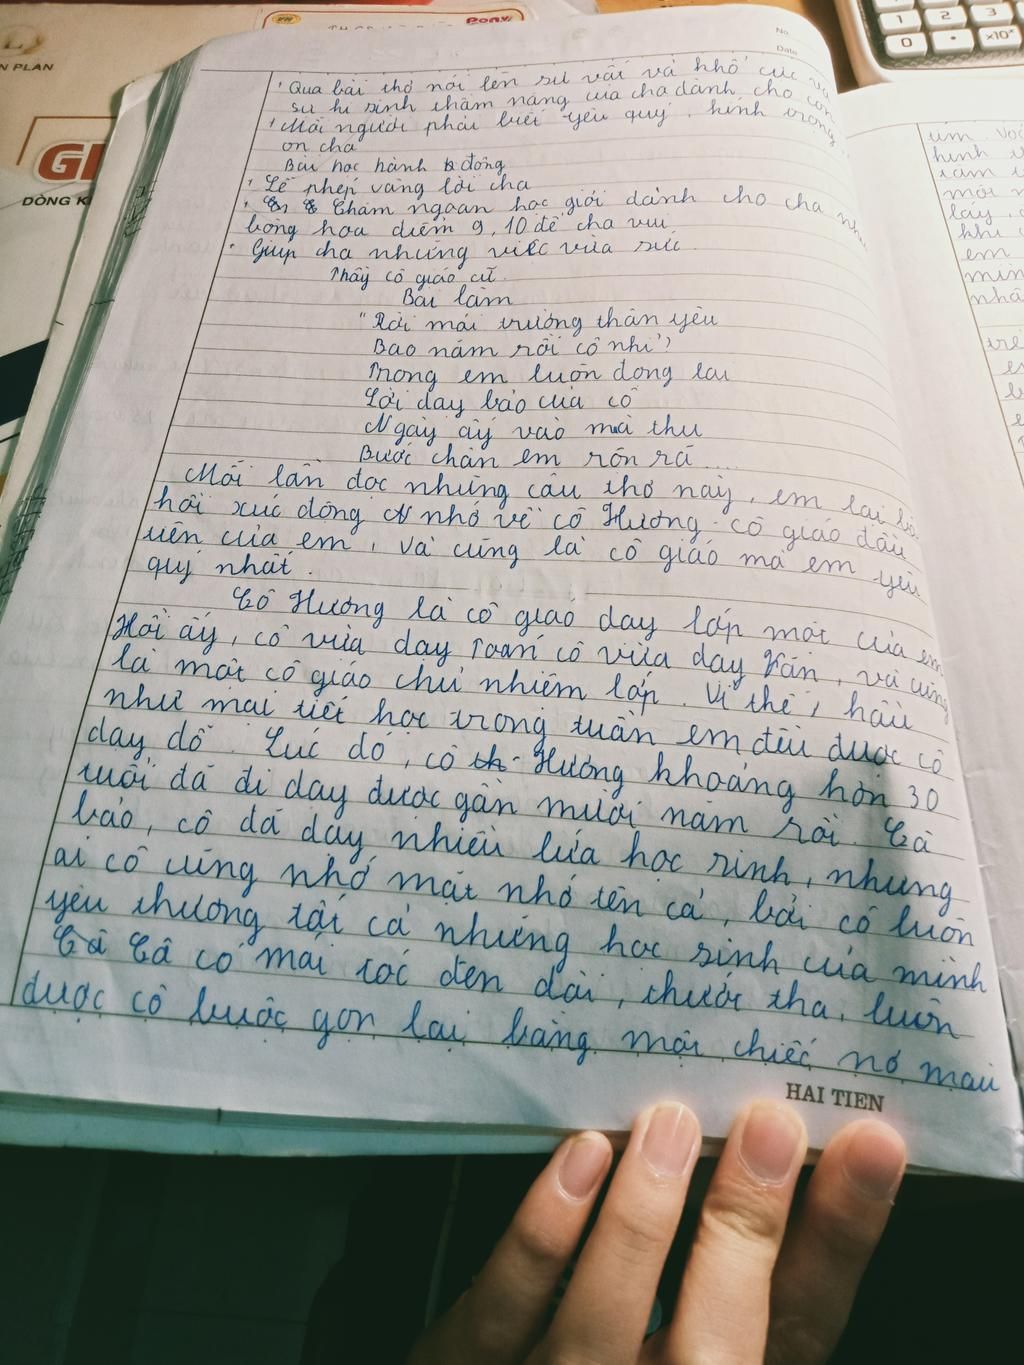 N PLAN
GI
DÒNG K
Pony
No.
Date
1 2 3
0 • ×10ˣ
' Qua bài thơ nói lên sự vất vả khổ cực và
sự hi sinh thầm nặng của cha dành cho con
' Mỗi người phải biết yêu quý, kính trọng
ơn cha
Bài học hành động
' Lễ phép vâng lời cha
' Chăm ngoan học giỏi dành cho cha như
bông hoa điểm 9, 10 để cha vui
' Giúp cha những việc vừa sức
Thầy cô giáo cũ.
Bài làm
"Rời mái trường thân yêu
Bao năm rồi cô nhỉ?
Trong em luôn đọng lại
Lời dạy bảo của cô
Ngày ấy vào mùa thu
Bước chân em rộn rã....
Mỗi lần đọc những câu thơ này, em lại bồi
hồi xúc động nhớ về cô Hương - cô giáo đầu
tiên của em, và cũng là cô giáo mà em yêu
quý nhất.
Cô Hương là cô giáo dạy lớp một của em
Hồi ấy, cô vừa dạy Toán cô vừa dạy Văn, và cũng
là một cô giáo chủ nhiệm lớp. Vì thế, hầu
như mọi tiết học trong tuần em đều được cô
dạy dỗ. Lúc đó, cô Hương khoảng hơn 30
tuổi đã đi dạy được gần mười năm rồi. Cô
bảo, cô đã dạy nhiều lứa học sinh, nhưng
ai cô cũng nhớ mặt nhớ tên cả, bởi cô luôn
yêu thương tất cả những học sinh của mình
Cô có mái tóc đen dài, thướt tha, luôn
được cô buộc gọn lại bằng một chiếc nơ màu
HAI TIEN
em